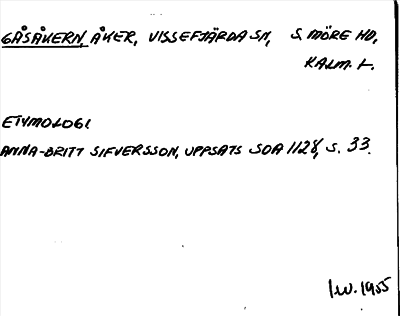 GÅSÅKERN, ÅKER, VISSEFJÄRDA SN, S. MÖRE HD,
KALM. L.
ETYMOLOGI
ANNA-BRITT SIFVERSSON, UPPSATS SOA 1128, S. 33.
1955